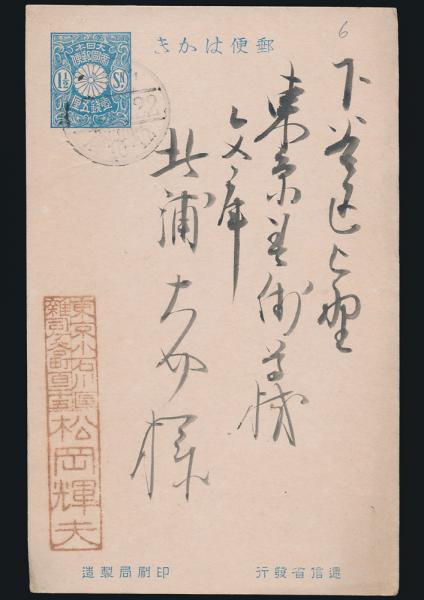 6
郵便はかき
大日本
帝國郵便
1½ Sɴ
壹錢五厘
22
下谷区上野
東京美術学校
文庫
北浦大介様
東京小石川區
雜司ヶ谷町百
松岡輝夫
遞信省發行
印刷局製造